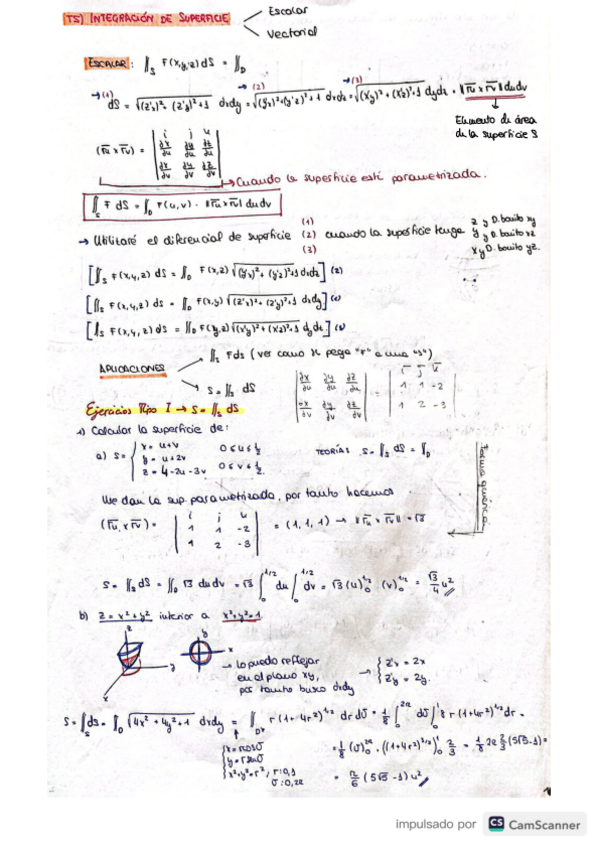 T5) INTEGRACIÓN DE SUPERFICIE
Escalar
Vectorial
ESCALAR: ∬_S F(x,y,z) dS = ∬_D
(1) (2) (3)
dS = √((z'x)² + (z'y)² + 1) dxdy = √((y'x)² + (y'z)² + 1) dxdz = √((x'y)² + (x'z)² + 1) dydz = ‖r̄u x r̄v‖ dudv
Elemento de área
de la superficie S
(r̄u x r̄v) = | i j k |
| ∂x/∂u ∂y/∂u ∂z/∂u |
| ∂x/∂v ∂y/∂v ∂z/∂v |
→ Cuando la superficie está parametrizada.
∬_S F dS = ∬_D F(u,v) · ‖r̄u x r̄v‖ dudv
→ Utilizaré el diferencial de superficie (1) (2) (3) cuando la superficie tenga
z y D. bonito xy
y y D. bonito xz
x y D. bonito yz.
[∬_S F(x,y,z) dS = ∬_D F(x,z) √((y'x)² + (y'z)² + 1) dxdz] (2)
[∬_S F(x,y,z) dS = ∬_D F(x,y) √((z'x)² + (z'y)² + 1) dxdy] (1)
[∬_S F(x,y,z) dS = ∬_D F(y,z) √((x'y)² + (x'z)² + 1) dydz] (3)
APLICACIONES
∬_S F dS (ver como se pega "F" a una "S")
S = ∬_S dS
| ∂x/∂u ∂y/∂u ∂z/∂u |
| ∂x/∂v ∂y/∂v ∂z/∂v |
= | i j k |
| 1 1 -2 |
| 1 2 -3 |
Ejercicios Tipo I → S = ∬_S dS
1) Calcular la superficie de:
a) S = { x = u+v 0≤u≤1/2
y = u+2v
z = 4-2u-3v 0≤v≤1/2.
TEORÍA: S = ∬_S dS = ∬_D
Me dan la sup. parametrizada, por tanto hacemos
(r̄u x r̄v) = | i j k |
| 1 1 -2 |
| 1 2 -3 |
= (1, 1, 1) → ‖r̄u x r̄v‖ = √3
S = ∬_S dS = ∬_D √3 dudv = √3 ∫_0^{1/2} du ∫_0^{1/2} dv = √3 (u)_0^{1/2} · (v)_0^{1/2} = √3/4 u²
b) z = x² + y² interior a x² + y² = 1
z y x
y x
→ Lo puedo reflejar
en el plano xy,
por tanto busco dxdy
→ { z'x = 2x
z'y = 2y.
S = ∫_S dS = ∬_D √(4x² + 4y² + 1) dxdy = ∬_D r(1+4r²)^{1/2} dr dθ = 1/8 ∫_0^{2π} dθ ∫_0^1 8r(1+4r²)^{1/2} dr =
{ x = rcosθ
y = rsenθ
x² + y² = r² ; r: 0,1
θ: 0,2π
= 1/8 (θ)_0^{2π} · ((1+4r²)^{3/2})_0^1 2/3 = 1/8 2π 2/3 (5√5 - 1) =
= π/6 (5√5 - 1) u²
impulsado por CS CamScanner